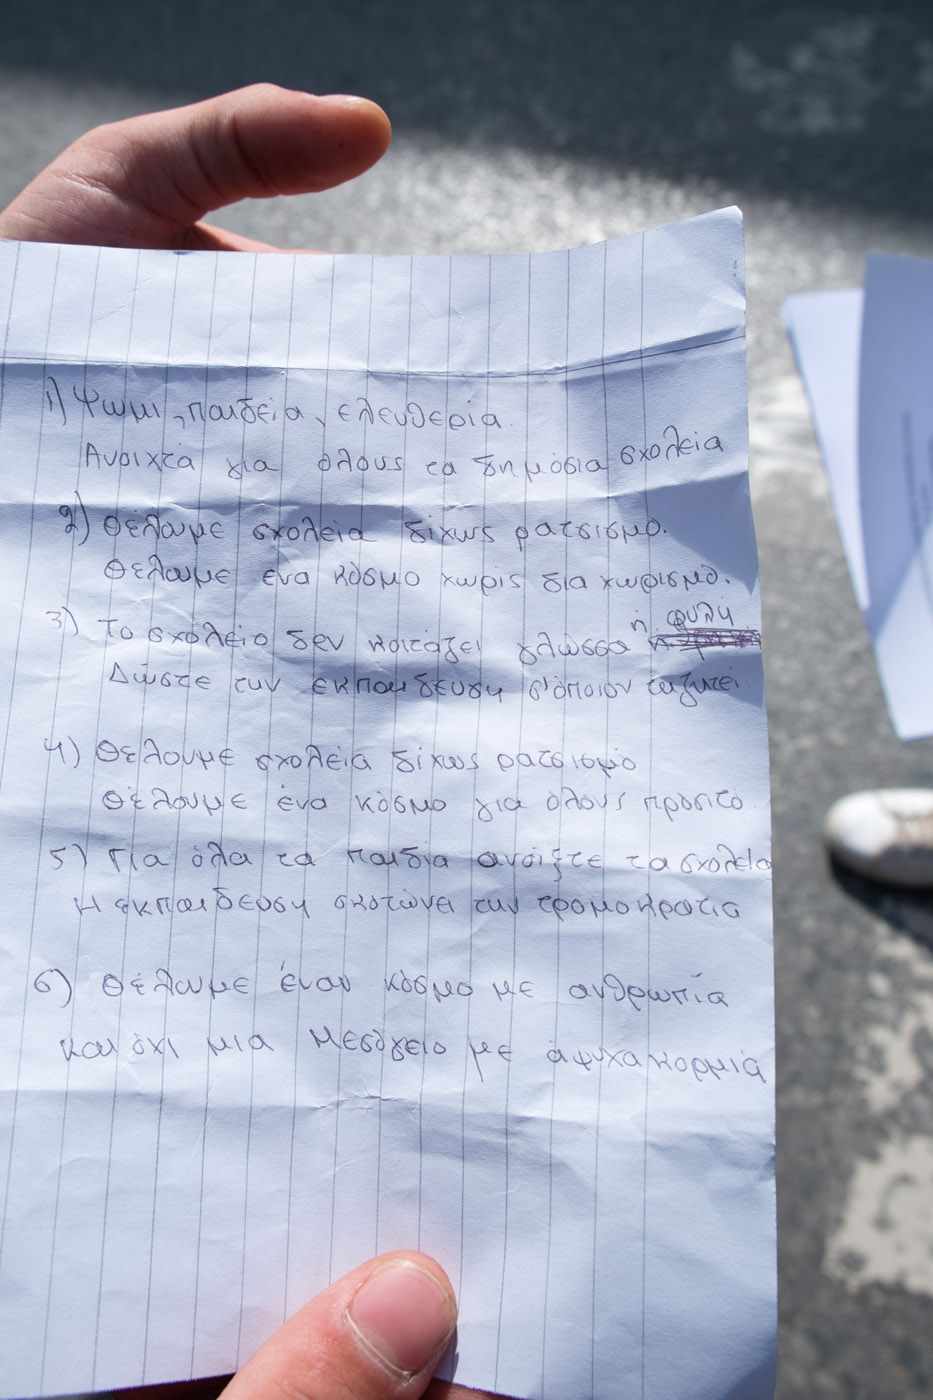 1) Ψωμι, παιδεία, ελευθερία.
Ανοιχτά για όλους τα δημόσια σχολεία
2) Θέλουμε σχολεία δίχως ρατσισμο.
Θέλουμε ενα κόσμο χωρίς διαχωρισμό.
3) Το σχολείο δεν κοιτάζει γλώσσα ή φυλή
Δώστε την εκπαιδευση σ'όποιον τη ζητεί.
4) Θέλουμε σχολεία δίχως ρατσισμό
Θέλουμε ένα κόσμο για όλους προσιτό
5) Για όλα τα παιδια ανοίξτε τα σχολεία
Η εκπαιδευση σκοτώνει την τρομοκρατία
6) Θέλουμε έναν κόσμο με ανθρωπία
και όχι μια Μεσόγειο με άψυχα κορμιά